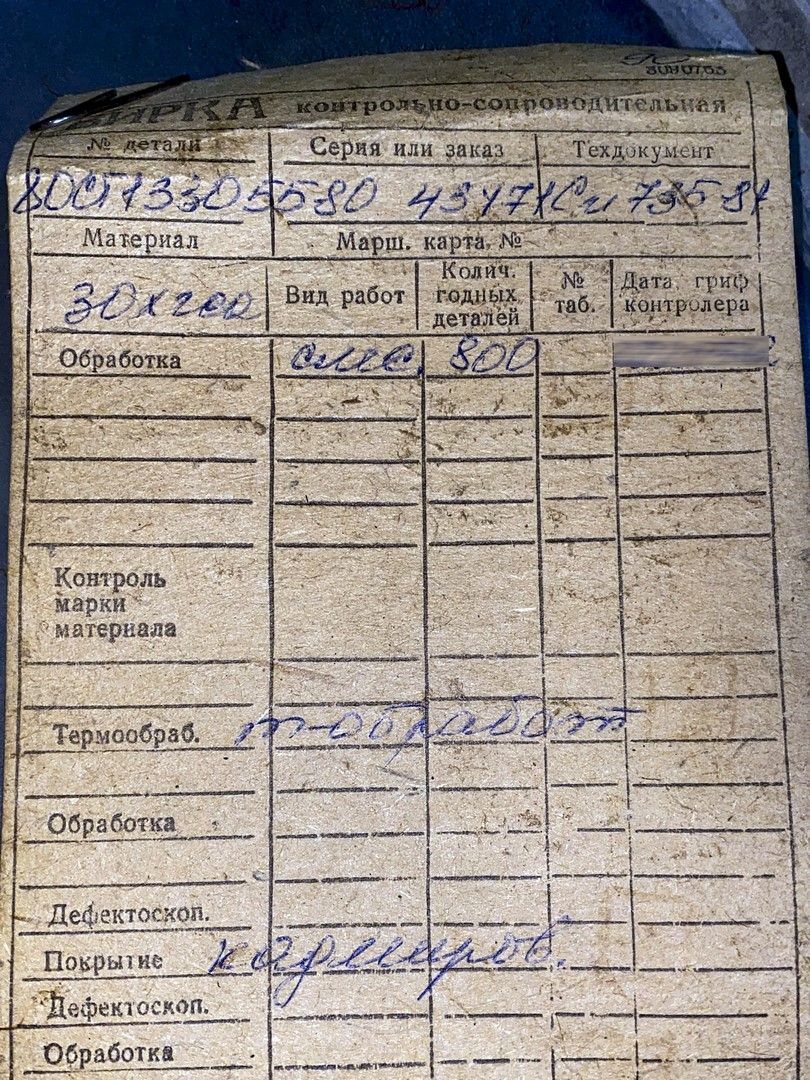 БИРКА контрольно-сопроводительная
№ детали Серия или заказ Техдокумент
Материал Марш. карта. №
30хгса Вид работ Колич. годных деталей № таб. Дата, гриф контролера
Обработка 800
Контроль
марки
материала
Термообраб. т-обработ
Обработка
Дефектоскоп.
Покрытие кадмиров.
Дефектоскоп.
Обработка